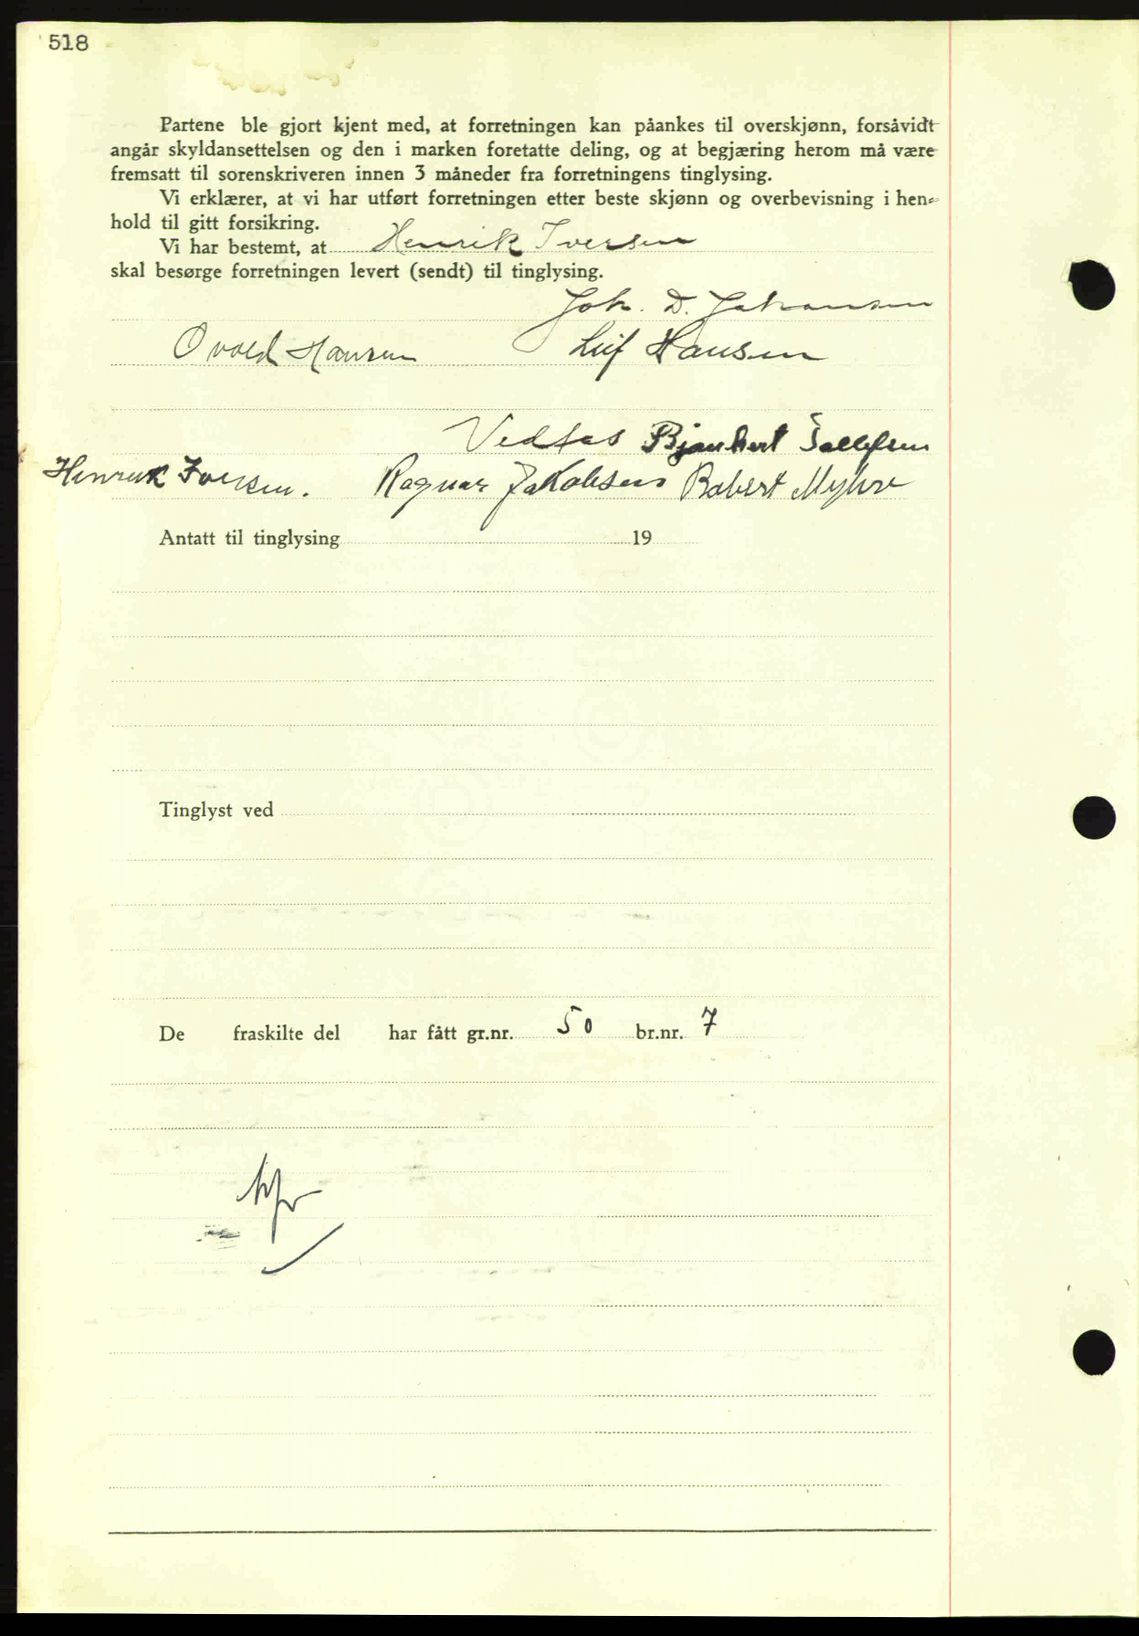 518
Partene ble gjort kjent med, at forretningen kan påankes til overskjønn, forsåvidt
angår skyldansettelsen og den i marken foretatte deling, og at begjæring herom må være
fremsatt til sorenskriveren innen 3 måneder fra forretningens tinglysing.
Vi erklærer, at vi har utført forretningen etter beste skjønn og overbevisning i hen-
hold til gitt forsikring.
Vi har bestemt, at Henrik Iversen
skal besørge forretningen levert (sendt) til tinglysing.
Joh. D. Johansen
Hansen Leif Hansen
Vedtas
Henrik Iversen. Ragnar Jakobsen Robert Myhre
Antatt til tinglysing 19
Tinglyst ved
De fraskilte del har fått gr.nr. 50 br.nr. 7